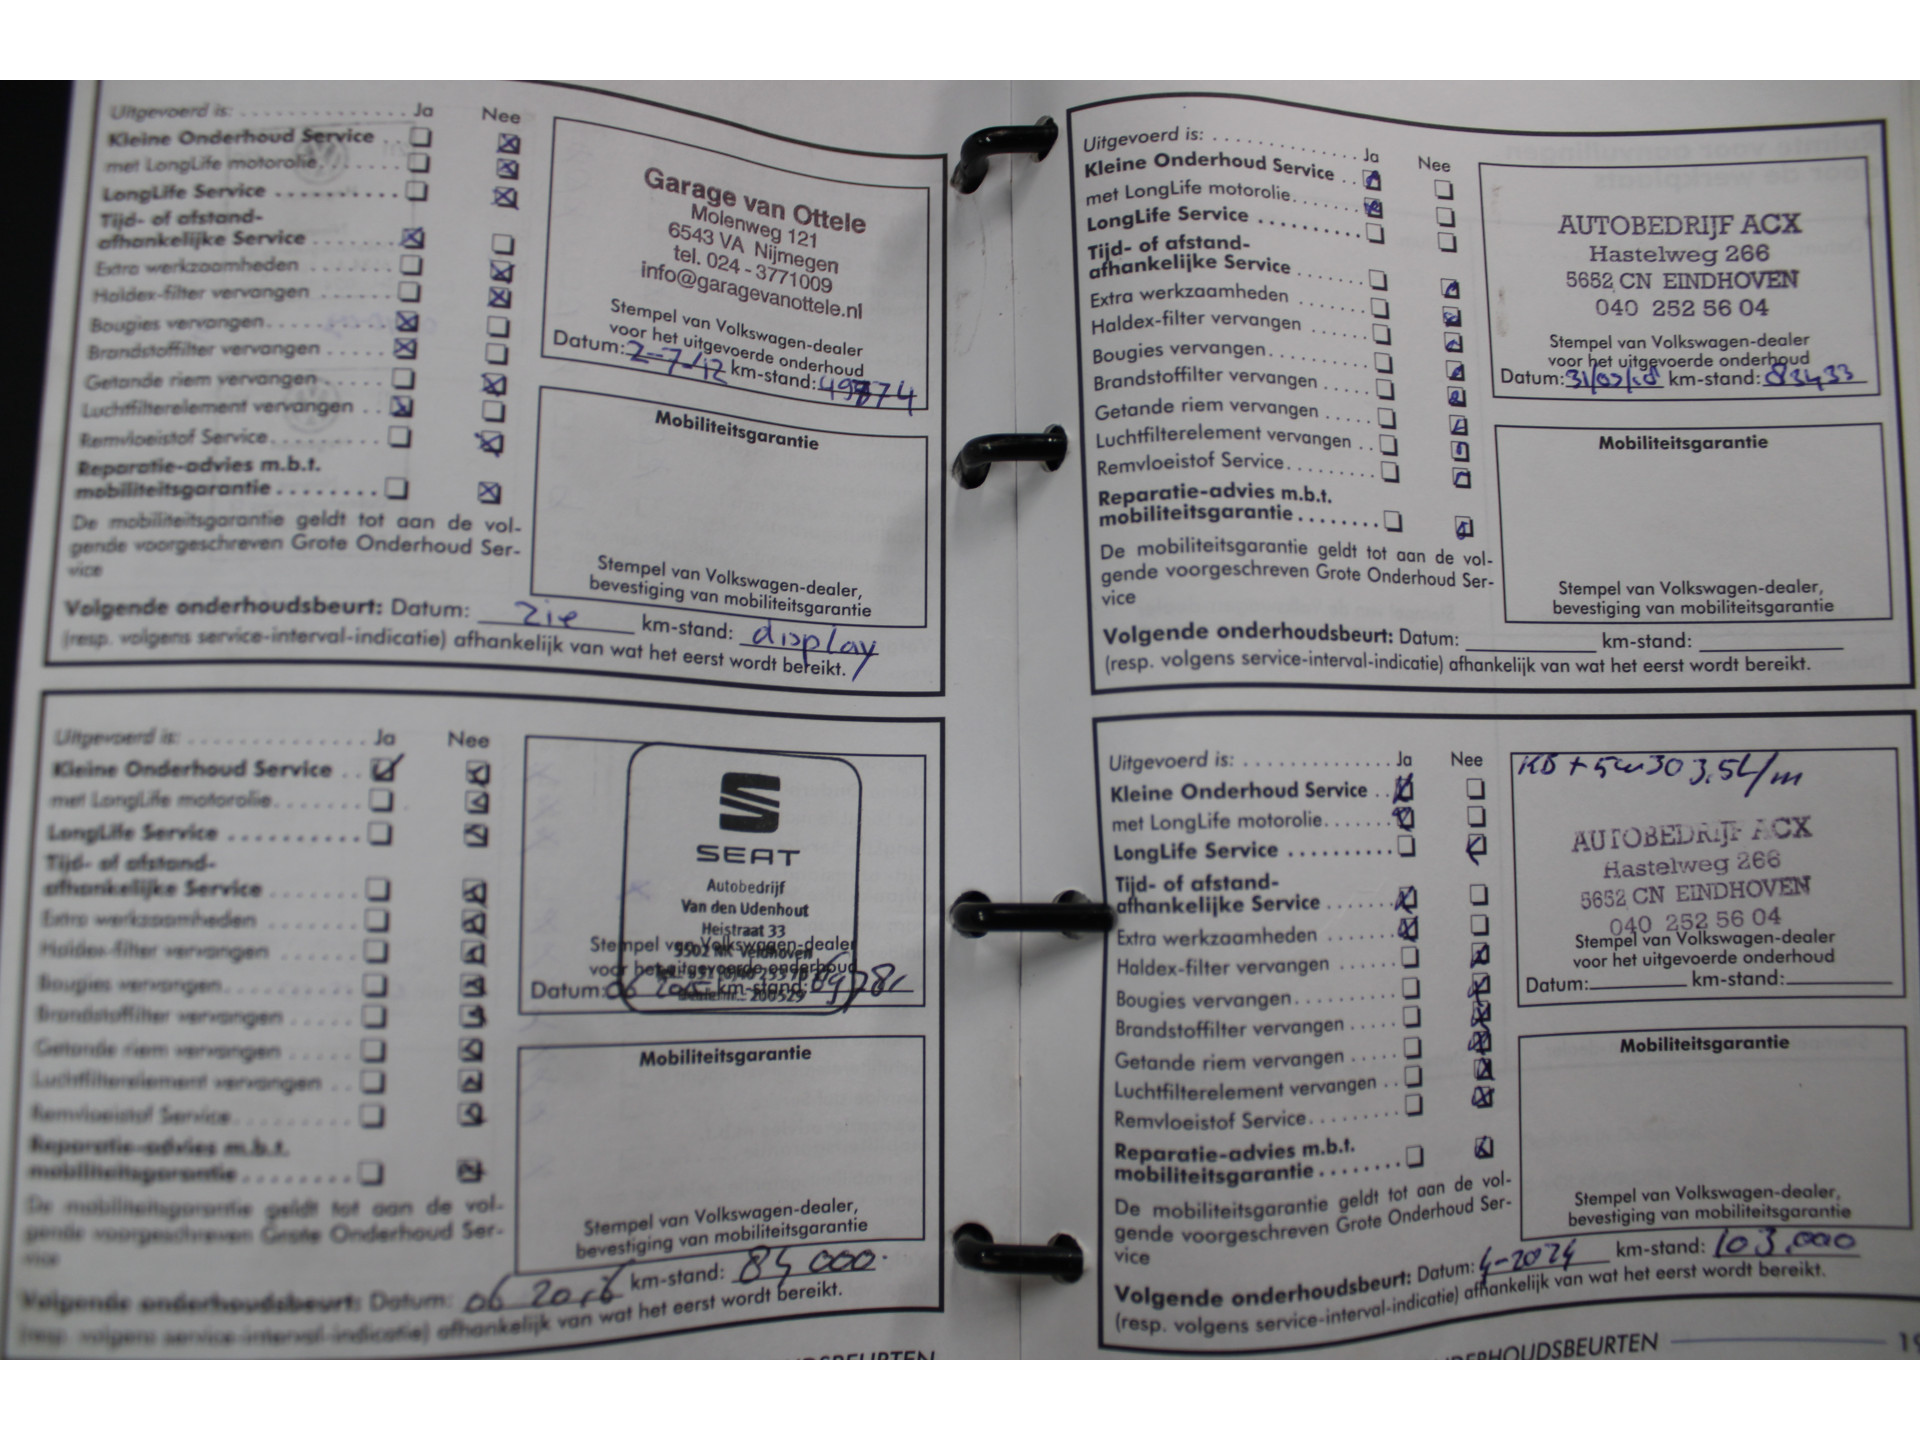 Uitgevoerd is: . . . . . . . . . . . . . . Ja Nee
Kleine Onderhoud Service . .
met LongLife motorolie. . . . . .
LongLife Service . . . . . . . . . .
Tijd- of afstand-
afhankelijke Service . . . . . . .
Extra werkzaamheden . . . . . . .
Haldex-filter vervangen . . . . . .
Bougies vervangen. . . . . . . . . .
Brandstoffilter vervangen . . . . .
Getande riem vervangen . . . . .
Luchtfilterelement vervangen . .
Remvloeistof Service. . . . . . . . .
Reparatie-advies m.b.t.
mobiliteitsgarantie . . . . . . . .
De mobiliteitsgarantie geldt tot aan de vol-
gende voorgeschreven Grote Onderhoud Ser-
vice
Garage van Ottele
Molenweg 121
6543 VA Nijmegen
tel. 024 - 3771009
info@garagevanottele.nl
Stempel van Volkswagen-dealer
voor het uitgevoerde onderhoud
Datum: 2-7-12 km-stand:
Mobiliteitsgarantie
Stempel van Volkswagen-dealer,
bevestiging van mobiliteitsgarantie
Volgende onderhoudsbeurt: Datum: zie km-stand: display
(resp. volgens service-interval-indicatie) afhankelijk van wat het eerst wordt bereikt.
Uitgevoerd is: . . . . . . . . . . . . . . Ja Nee
Kleine Onderhoud Service . .
met LongLife motorolie. . . . . . .
LongLife Service . . . . . . . . . .
Tijd- of afstand-
afhankelijke Service . . . . . . .
Extra werkzaamheden . . . . . . .
Haldex-filter vervangen . . . . . .
Bougies vervangen. . . . . . . . . .
Brandstoffilter vervangen . . . . .
Getande riem vervangen . . . . .
Luchtfilterelement vervangen . .
Remvloeistof Service. . . . . . . . .
Reparatie-advies m.b.t.
mobiliteitsgarantie . . . . . . . .
De mobiliteitsgarantie geldt tot aan de vol-
gende voorgeschreven Grote Onderhoud Ser-
vice
SEAT
Autobedrijf
Van den Udenhout
Heistraat 33
Stempel van Volkswagen-dealer
Veldhoven
voor het uitgevoerde onderhoud
Datum: 06 km-stand:
200529
Mobiliteitsgarantie
Stempel van Volkswagen-dealer,
bevestiging van mobiliteitsgarantie
Volgende onderhoudsbeurt: Datum: 06 2016 km-stand: 84 000.
(resp. volgens service-interval-indicatie) afhankelijk van wat het eerst wordt bereikt.
Uitgevoerd is: . . . . . . . . . . . . . . Ja Nee
Kleine Onderhoud Service . .
met LongLife motorolie. . . . . . .
LongLife Service . . . . . . . . . .
Tijd- of afstand-
afhankelijke Service . . . . . . .
Extra werkzaamheden . . . . . . .
Haldex-filter vervangen . . . . . .
Bougies vervangen. . . . . . . . . .
Brandstoffilter vervangen . . . . .
Getande riem vervangen . . . . .
Luchtfilterelement vervangen . .
Remvloeistof Service. . . . . . . . .
Reparatie-advies m.b.t.
mobiliteitsgarantie . . . . . . . .
De mobiliteitsgarantie geldt tot aan de vol-
gende voorgeschreven Grote Onderhoud Ser-
vice
AUTOBEDRIJF ACX
Hastelweg 266
5652 CN EINDHOVEN
040 252 56 04
Stempel van Volkswagen-dealer
voor het uitgevoerde onderhoud
Datum: km-stand: 83433
Mobiliteitsgarantie
Stempel van Volkswagen-dealer,
bevestiging van mobiliteitsgarantie
Volgende onderhoudsbeurt: Datum: km-stand:
(resp. volgens service-interval-indicatie) afhankelijk van wat het eerst wordt bereikt.
Uitgevoerd is: . . . . . . . . . . . . . . Ja Nee
Kleine Onderhoud Service . .
met LongLife motorolie. . . . . . .
LongLife Service . . . . . . . . . .
Tijd- of afstand-
afhankelijke Service . . . . . . .
Extra werkzaamheden . . . . . . .
Haldex-filter vervangen . . . . . .
Bougies vervangen. . . . . . . . . .
Brandstoffilter vervangen . . . . .
Getande riem vervangen . . . . .
Luchtfilterelement vervangen . .
Remvloeistof Service. . . . . . . . .
Reparatie-advies m.b.t.
mobiliteitsgarantie . . . . . . . .
De mobiliteitsgarantie geldt tot aan de vol-
gende voorgeschreven Grote Onderhoud Ser-
vice
KB + 5w30 3.5L/m
AUTOBEDRIJF ACX
Hastelweg 266
5652 CN EINDHOVEN
040 252 56 04
Stempel van Volkswagen-dealer
voor het uitgevoerde onderhoud
Datum: km-stand:
Mobiliteitsgarantie
Stempel van Volkswagen-dealer,
bevestiging van mobiliteitsgarantie
Volgende onderhoudsbeurt: Datum: 4-2024 km-stand: 103.000
(resp. volgens service-interval-indicatie) afhankelijk van wat het eerst wordt bereikt.